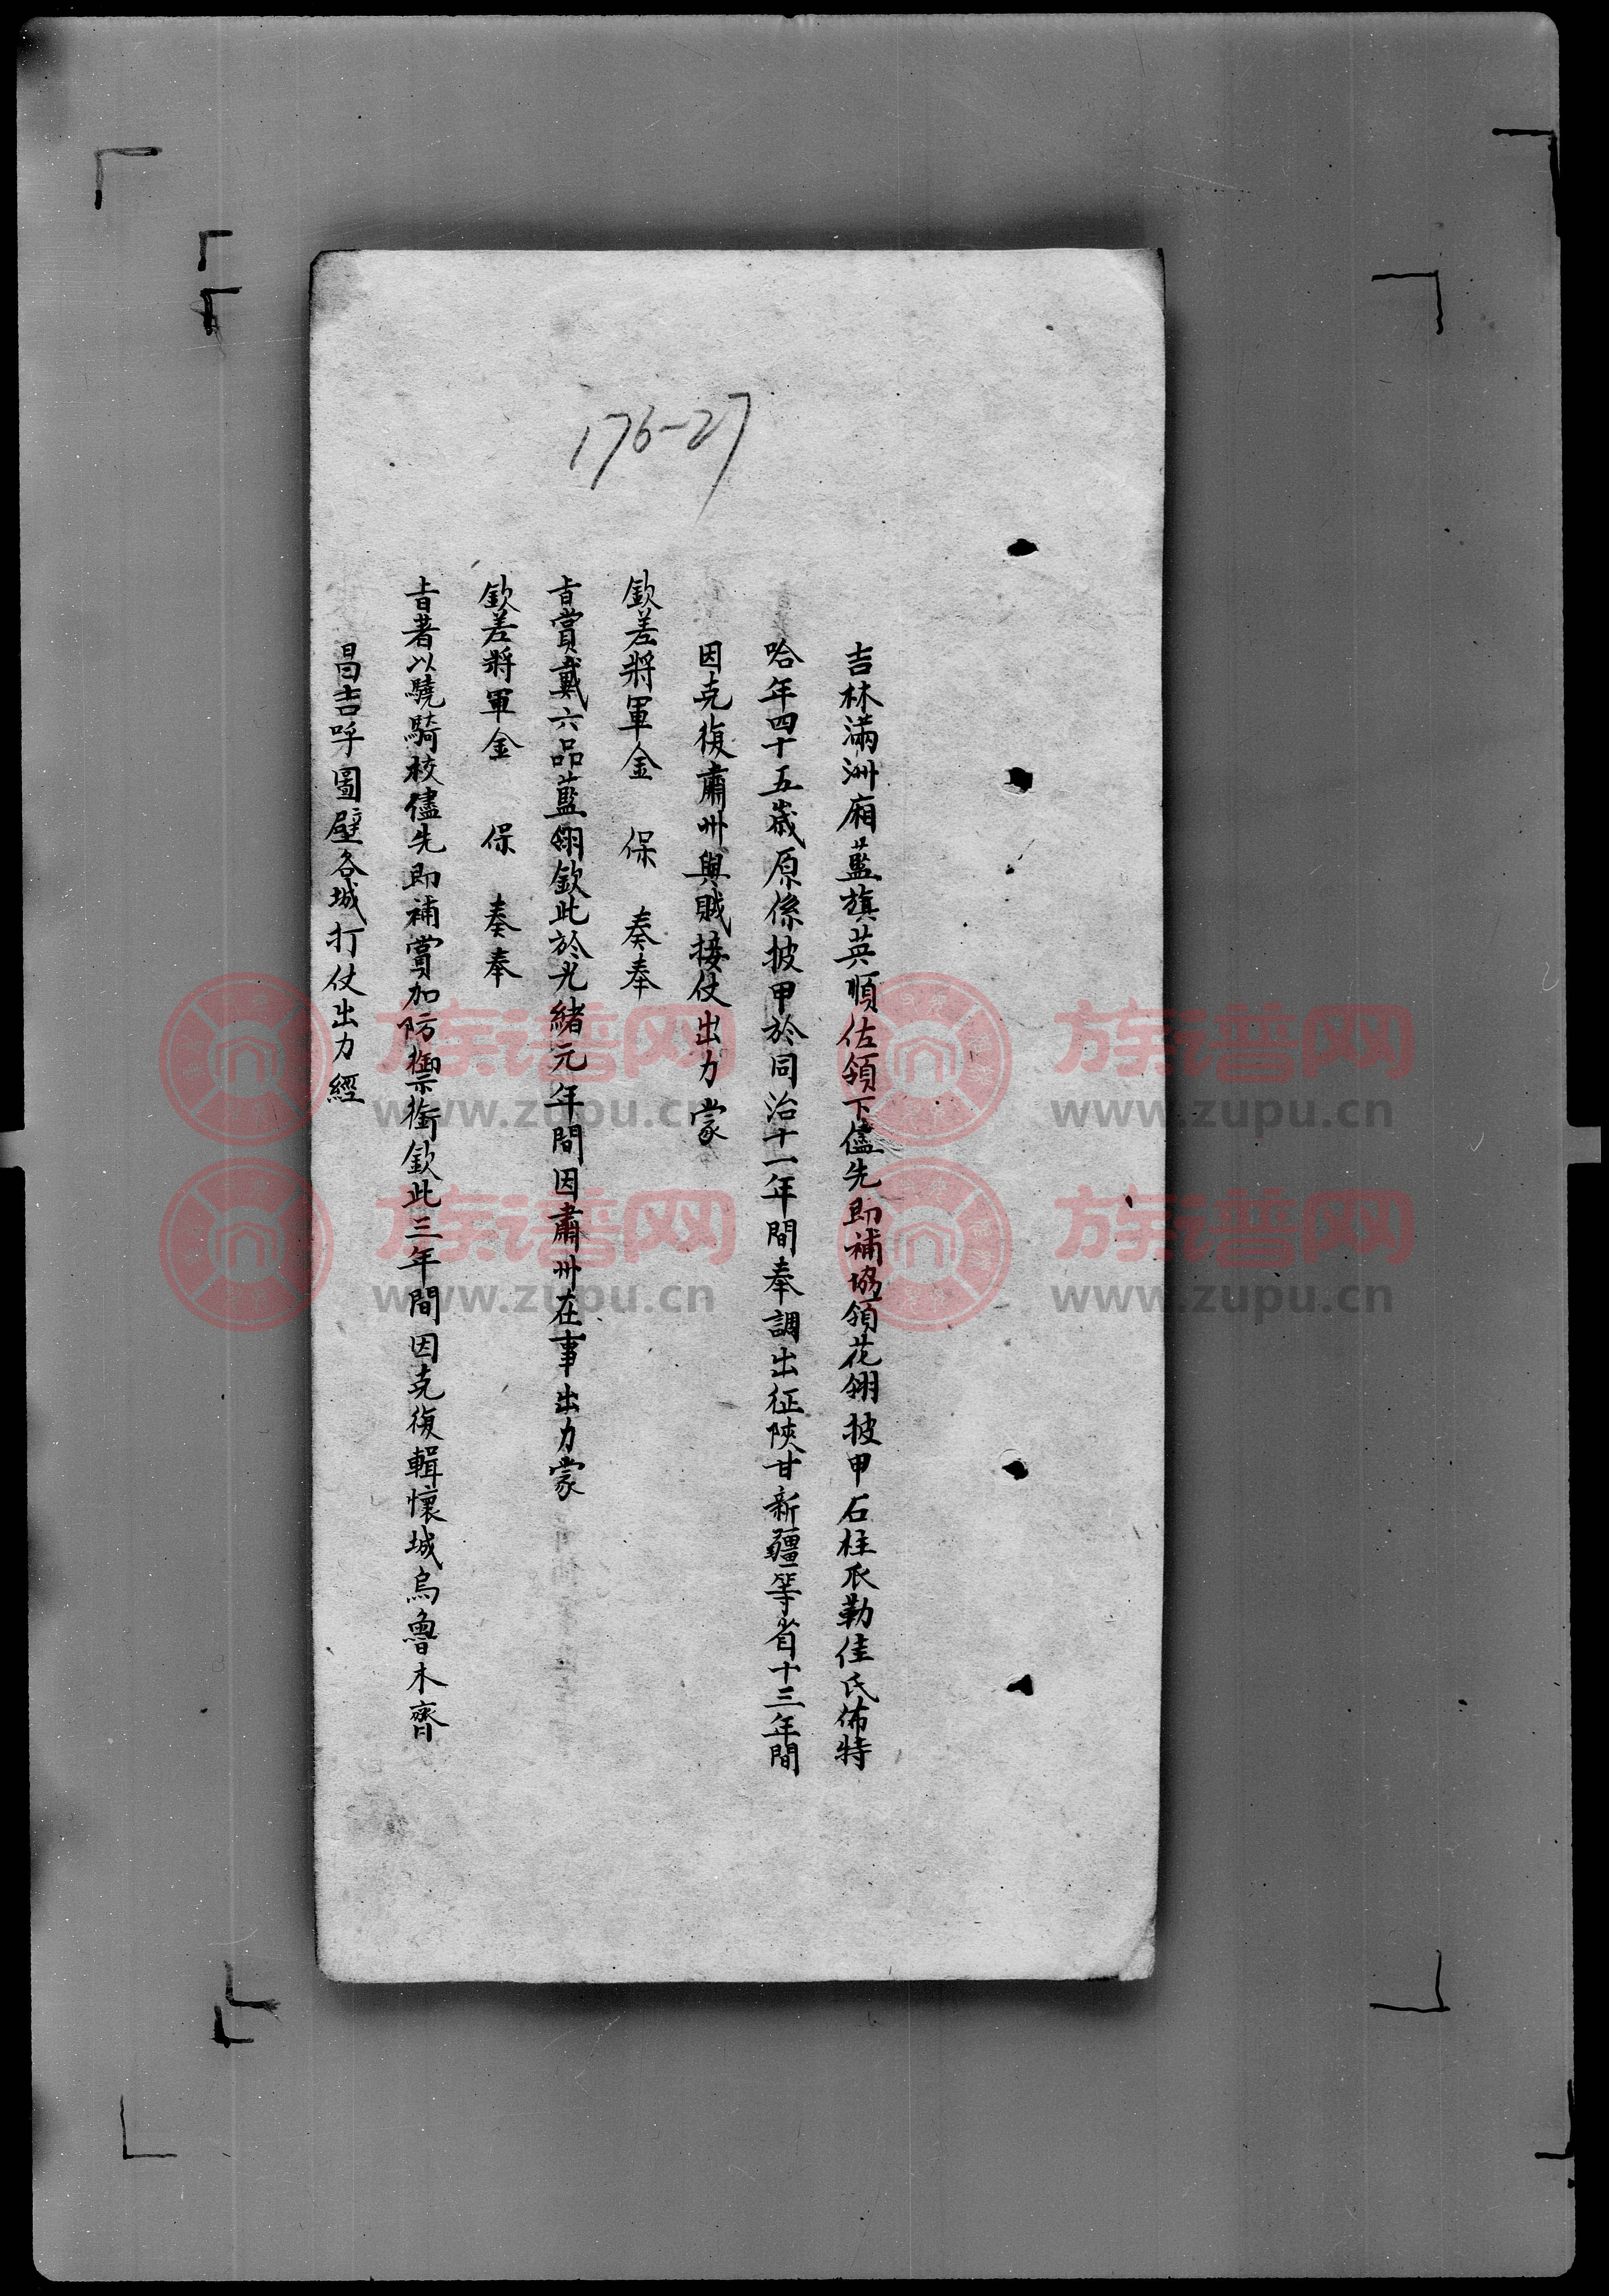 176-27
吉林滿洲廂藍旗英順佐領下儘先即補協領花翎披甲石柱瓜勒佳氏佈特
哈年四十五歲原係披甲於同治十一年間奉調出征陝甘新疆等省十三年間
因克復肅州與賊接仗出力蒙
欽差將軍金 保 奏奉
旨賞戴六品藍翎欽此於光緒元年間因肅州在事出力蒙
欽差將軍金 保 奏奉
旨著以驍騎校儘先即補賞加防禦銜欽此三年間因克復輯懷城烏魯木齊
昌吉呼圖壁各城打仗出力經
族谱网
www.zupu.cn
族谱网
www.zupu.cn
族谱网
www.zupu.cn
族谱网
www.zupu.cn